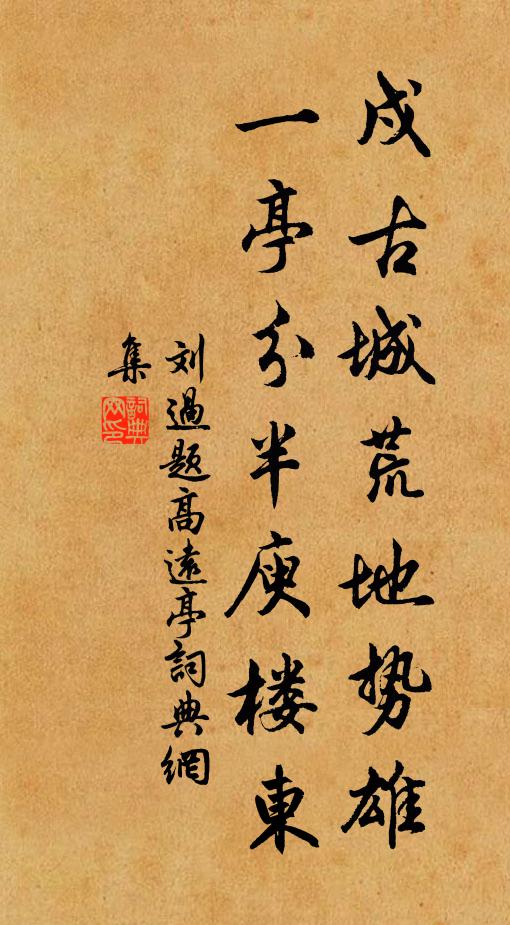 戍古城荒地势雄
一亭分半庾楼東
刘過题高遠亭詞典網
集
詞典網印